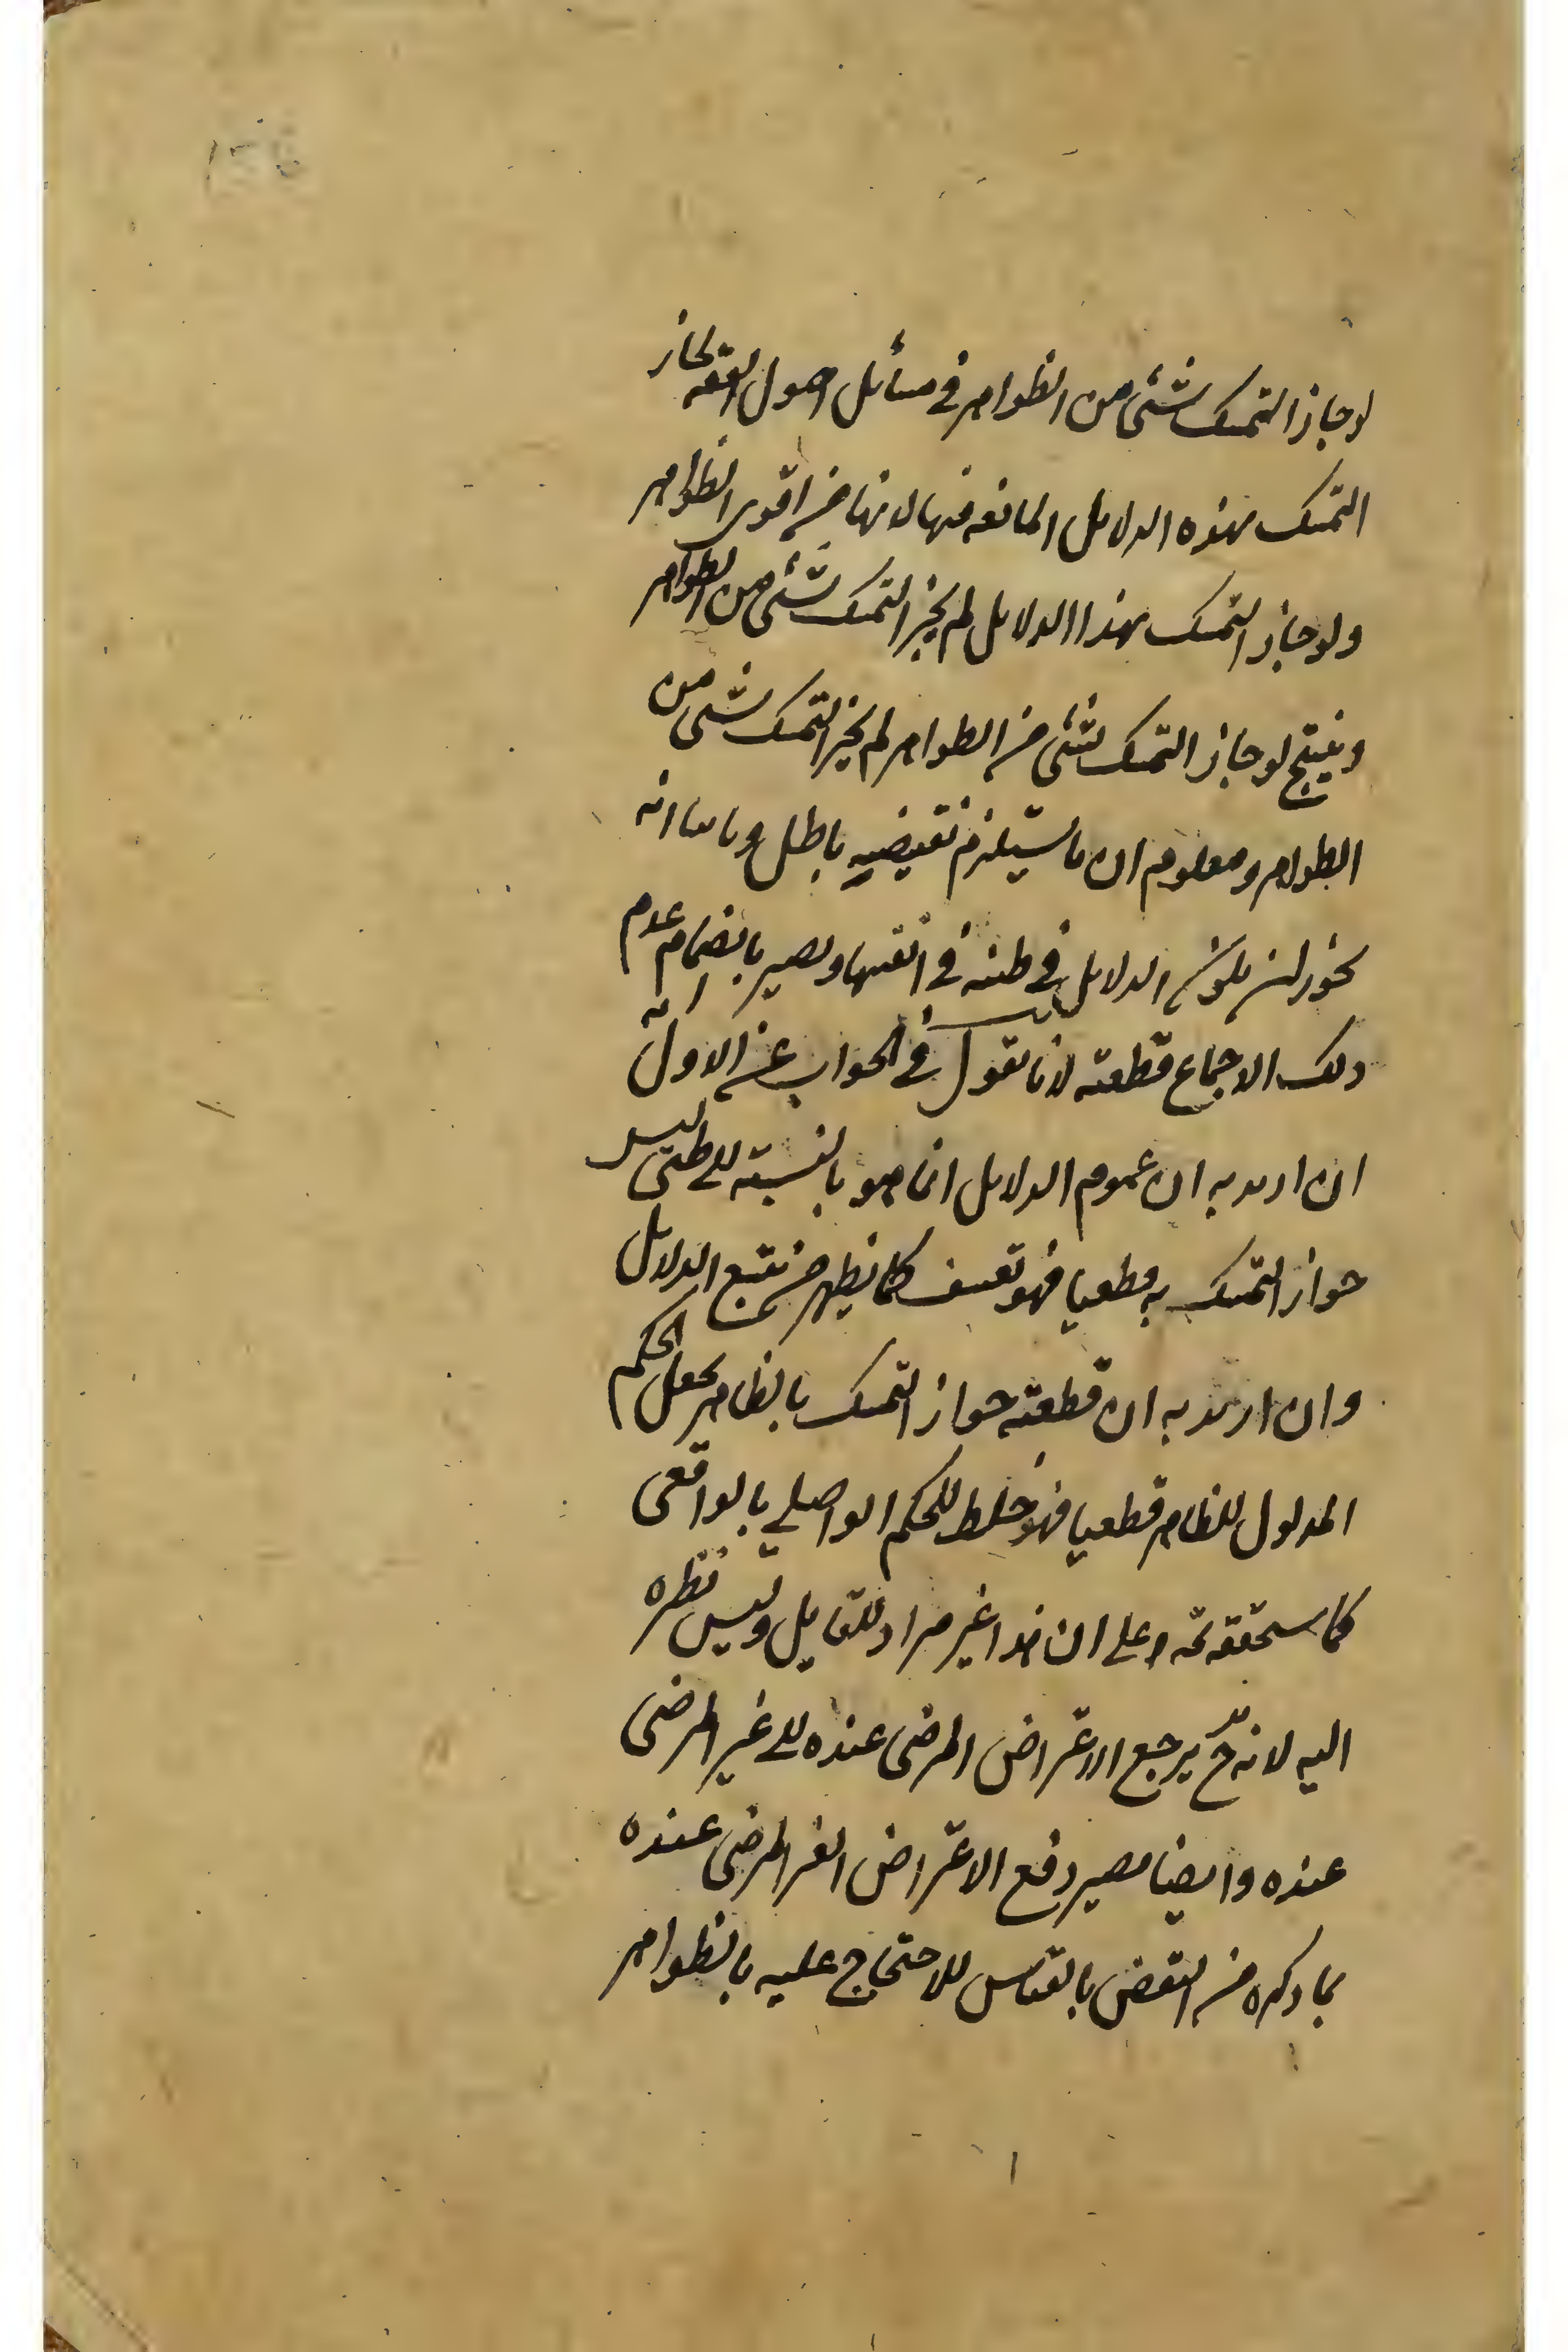 لو جاز التمسک بشئ من الظواهر فی مسائل اصول الفقه لجاز
التمسک بهذه الدلایل المانعه منها لانها من اقوی الظواهر
ولو جاز التمسک بهذا الدلایل لم یجز التمسک بشئ من الظواهر
وینتج لو جاز التمسک بشئ من الظواهر لم یجز التمسک بشئ من
الظواهر ومعلوم ان ما یستلزم نقیضیه باطل وثامنا انه
یجوز ان یکون الدلایل ظنیه فی انفسها ویصیر بانضمام عدم
ذلک الاجماع قطعیه لانا نقول فی الجواب عن الاول انه
ان ارید به ان عموم الدلایل انما هو بالنسبته الی ظنی لیس
جواز التمسک به قطعیا فهو تعسف کما یظهر من تتبع الدلایل
وان ارید به ان قطعیته جواز التمسک بالظاهر یجعل الحکم
المدلول للظاهر قطعیا فهو خلط للحکم الواصلی بالواقعی
کما سنحققه وعلی ان هذا غیر مراد للقایل ولیس نظره
الیه لانه ح یرجع الاعتراض المرضی عنده الی غیر المرضی
عنده وایضا یصیر دفع الاعتراض الغیر المرضی عنده
بما ذکره من النقض بالقیاس للاحتجاج علیه بالظواهر